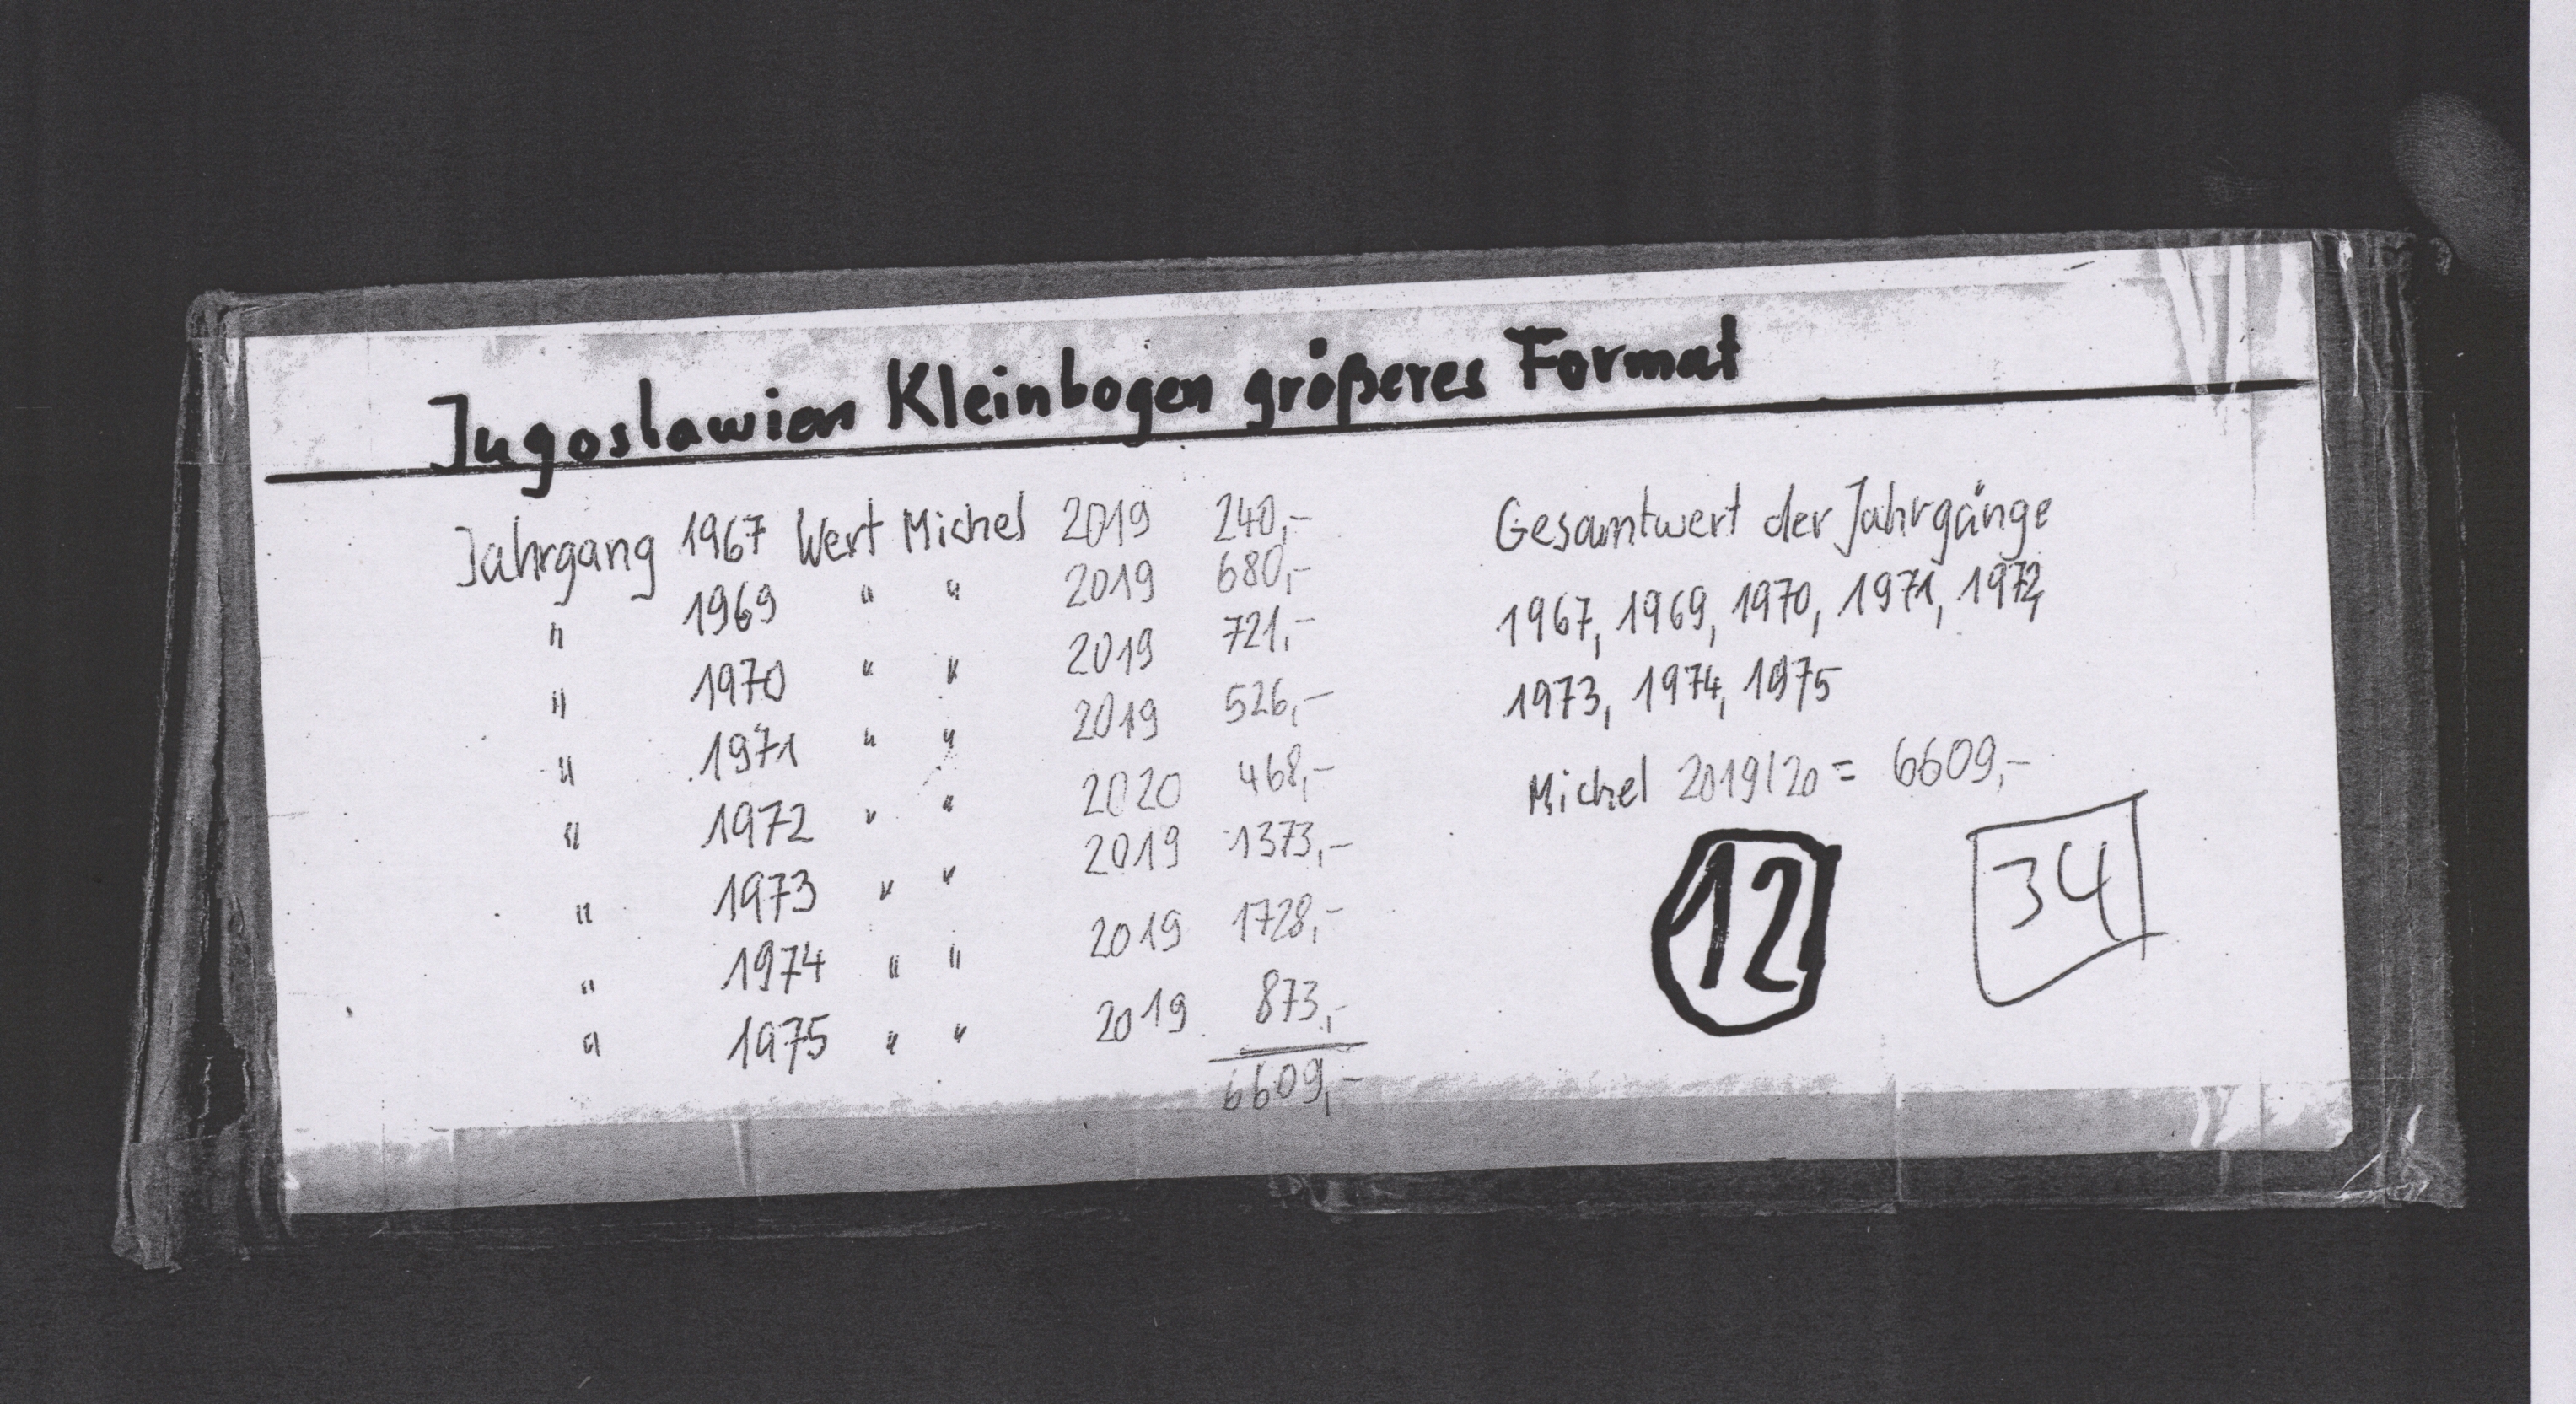 Jugoslawien Kleinbogen größeres Format
Jahrgang 1967 Wert Michel 2019 240,-
" 1969 " " 2019 680,-
" 1970 " " 2019 721,-
" 1971 " " 2019 526,-
" 1972 " " 2020 468,-
" 1973 " " 2019 1373,-
" 1974 " " 2019 1728,-
" 1975 " " 2019 873,-
6609,-
Gesamtwert der Jahrgänge
1967, 1969, 1970, 1971, 1972,
1973, 1974, 1975
Michel 2019/20 = 6609,-
12
34